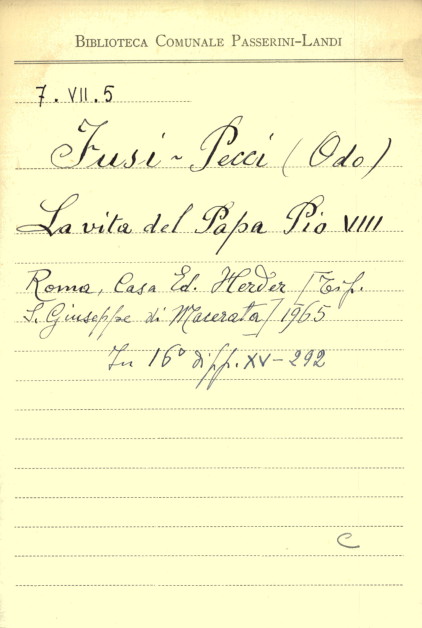 BIBLIOTECA COMUNALE PASSERINI-LANDI
7. VII. 5
Fusi-Pecci (Odo)
La vita del Papa Pio VIII
Roma, Casa Ed. Herder [Tip.
S. Giuseppe di Macerata] 1965
In 16° di pp. XV-292
C